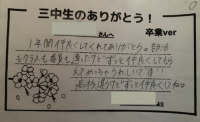 三中生のありがとう！
卒業ver
さんへ
1年間仲良くしてくれてありがとう。部活
もクラスも委員も違ったけどずっと仲良くしてもら
えてめっちゃうれしいです!!
高校違うけどずっと仲良くしてね
より